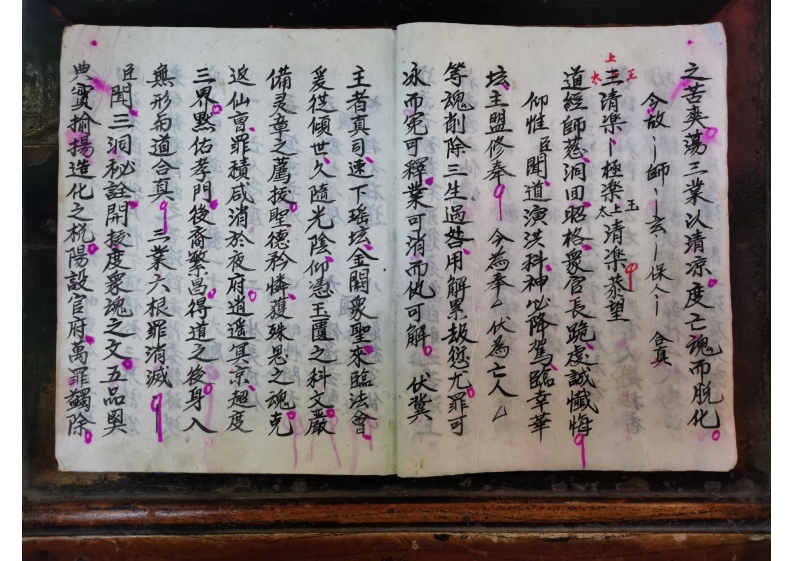 之苦爽蕩三業以清凉度亡魂而脫化
今故〻師〻玄〻保人〻 合真
上 太 三 玉 清樂〻極樂 太上玉 清樂恭望
道經師慈洞回昭格衆官長跪虔誠懺悔
仰惟臣聞道演洪科神必降駕臨幸華
坛主盟修奉 今為奉厶伏為亡人厶
等魂削除三生過咎用解累劫愆尤罪可
冰而冤可釋業可消而仇可解 伏冀
主者真司速下瑶坛金闕衆聖來臨法會
爰從傾世久隨光陰仰憑玉匱之科文嚴
備灵章之薦拔聖德矜憐獲殊恩之魂克
返仙曹罪積咸消於夜府逍遥冥京超度
三界黙佑孝門後裔繁昌得道之後身入
無形與道合真 三業六根罪消滅
臣聞三洞秘詮開拔度衆魂之文五品奥
典實揄揚造化之柷陽設官府萬罪蠲除